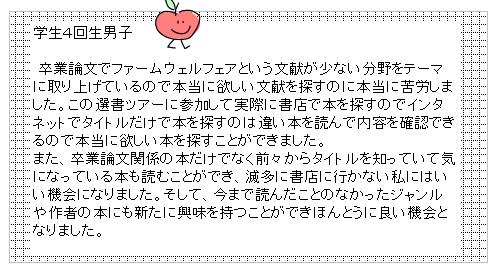 学生4回生男子
卒業論文でファームウェルフェアという文献が少ない分野をテーマ
に取り上げているので本当に欲しい文献を探すのに本当に苦労しま
した。この選書ツアーに参加して実際に書店で本を探すのでインタ
ネットでタイトルだけで本を探すのは違い本を読んで内容を確認でき
るので本当に欲しい本を探すことができました。
また、卒業論文関係の本だけでなく前々からタイトルを知っていて気
になっている本も読むことができ、滅多に書店に行かない私にはい
い機会になりました。そして、今まで読んだことのなかったジャンル
や作者の本にも新たに興味を持つことができほんとうに良い機会と
なりました。